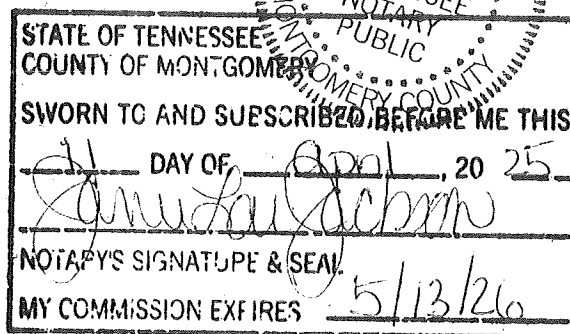 TENNESSEE
NOTARY
PUBLIC
MONTGOMERY COUNTY
STATE OF TENNESSEE
COUNTY OF MONTGOMERY
SWORN TO AND SUBSCRIBED BEFORE ME THIS
11 DAY OF April, 20 25
NOTARY'S SIGNATURE & SEAL
MY COMMISSION EXPIRES 5/13/26